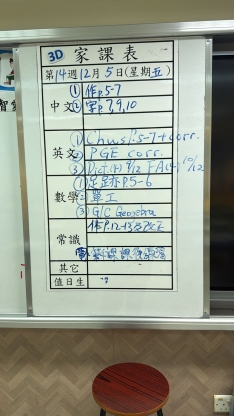 3D 家課表
第14週12月5日(星期五)
中文
① 作p.5-7
② 字p.7,9,10
英文
① Chus1 p.5-7+corr.
② PGE corr.
③ Dict.(4) 8/12 FA(4) 10/12
數學
① 足跡P.5-6
② 單工
③ G/C Geogebra
常識
作P.12-13
其它
值日生